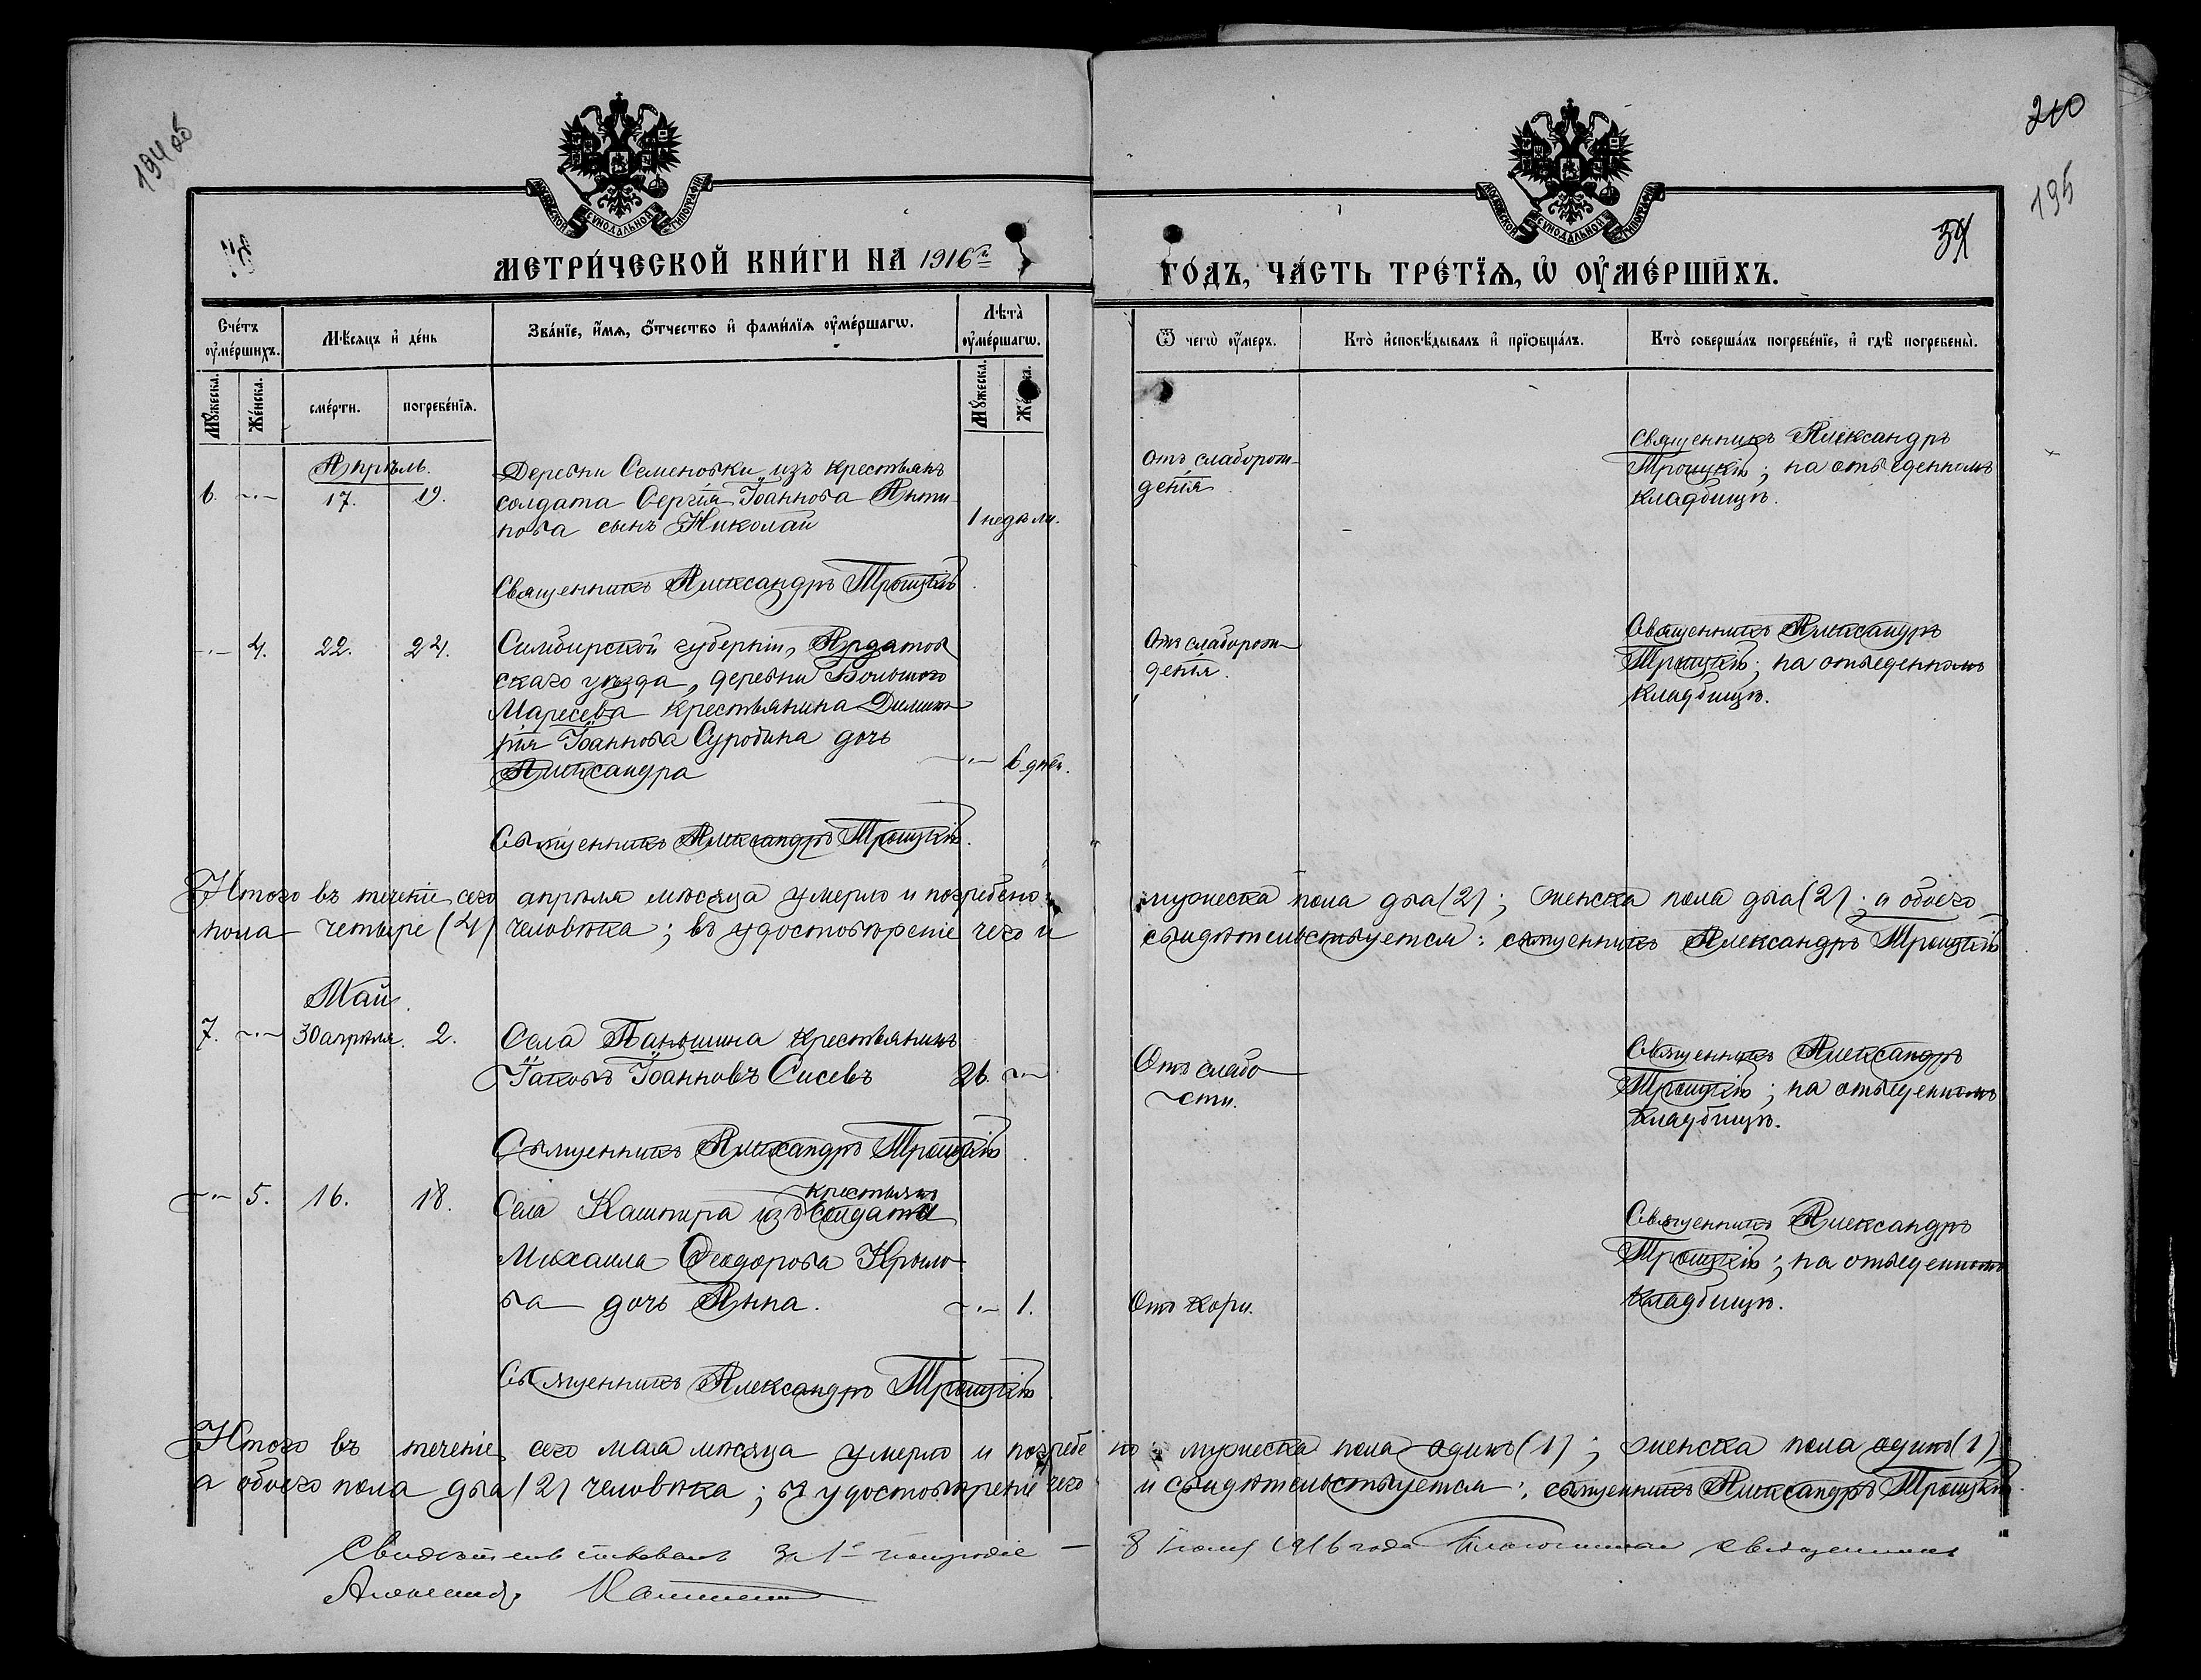 194 об
210
195
34
МОСКОВСКОЙ СѴНОДАЛЬНОЙ ТИПОГРАФІИ
МОСКОВСКОЙ СѴНОДАЛЬНОЙ ТИПОГРАФІИ
МЕТРИ́ЧЕСКОЙ КНИ́ГИ НА 1916й
ГО́ДЪ, ЧА́СТЬ ТРЕ́ТЇѦ, Ѡ҆ ОУ҆МЕ́РШИХЪ.
Сче́тъ оу҆ме́ршихъ.
Мѣ́сяцъ и҆ де́нь
Зва́нїе, и҆́мѧ, ѻ҆́тчество и҆ фами́лїѧ оу҆ме́ршагѡ.
Лѣ̀та̀ оу҆ме́ршагѡ.
Ѿ чегѡ̀ оу҆́меръ.
Кто̀ и҆сповѣ́дывалъ и҆ прїѡбща́лъ.
Кто̀ соверша́лъ погребе́нїе, и҆ гдѣ̀ погребены̀.
Мꙋ́жеска.
Же́нска.
сме́рти.
погребе́нїѧ.
Мꙋ́жеска.
Апрѣль.
6. -·- 17. 19.
Деревни Семеновки изъ крестьянъ
солдата Сергія Іоаннова Анти-
пова сынъ Николай
1 недѣли.
Отъ слаборож-
денія
Священникъ Александръ
Троицкій; на отведенномъ
кладбищѣ.
Священникъ Александръ Троицкій
-·- 4. 22. 24.
Симбирской губерніи, Ардатов
скаго уѣзда, деревни Большого
Маресева крестьянина Димит
рія Іоаннова Суродина дочь
Александра
-·- 6 дней.
Отъ слаборож-
денія.
Священникъ Александръ
Троицкій; на отведенномъ
кладбищѣ.
Священникъ Александръ Троицкій.
Итого въ теченіе сего апрѣля мѣсяца умерло и погребено: мужеска пола два (2); женска пола два (2); а обоего
пола четыре (4) человѣка; въ удостовѣреніе чего и свидѣтельствуется: священникъ Александръ Троицкій
Май.
7. -·- 30 апрѣля. 2.
Села Паньшина крестьянинъ
Іаковъ Іоанновъ Сисевъ
26. -·-
Отъ слабо
сти.
Священникъ Александръ
Троицкій; на отведенномъ
кладбищѣ.
Священникъ Александръ Троицкій
-·- 5. 16. 18.
крестьянъ
Села Кашпира изъ солдата
Михаила Ѳеодорова Крыло
ва дочь Анна.
-·- 1.
Отъ кори.
Священникъ Александръ
Троицкій; на отведенномъ
кладбищѣ.
Священникъ Александръ Троицкій
Итого въ теченіе сего мая мѣсяца умерло и погребено: мужеска пола одинъ (1); женска пола одинъ (1);
а обоего пола два (2) человѣка; въ удостовѣреніе чего и свидѣтельствуется: священникъ Александръ Троицкій.
Свидѣтельствовалъ за 1е полугодіе – 8 Іюля 1916 года Благочинный священникъ